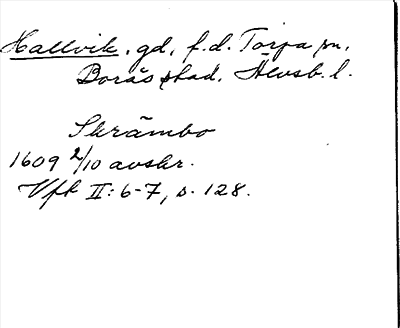 Hallvik, gd, f.d. Torpa sn,
Borås stad. Älvsb. l.
Skrämbo
1609 2/10 avskr.
Vfk II: 6-7, s. 128.